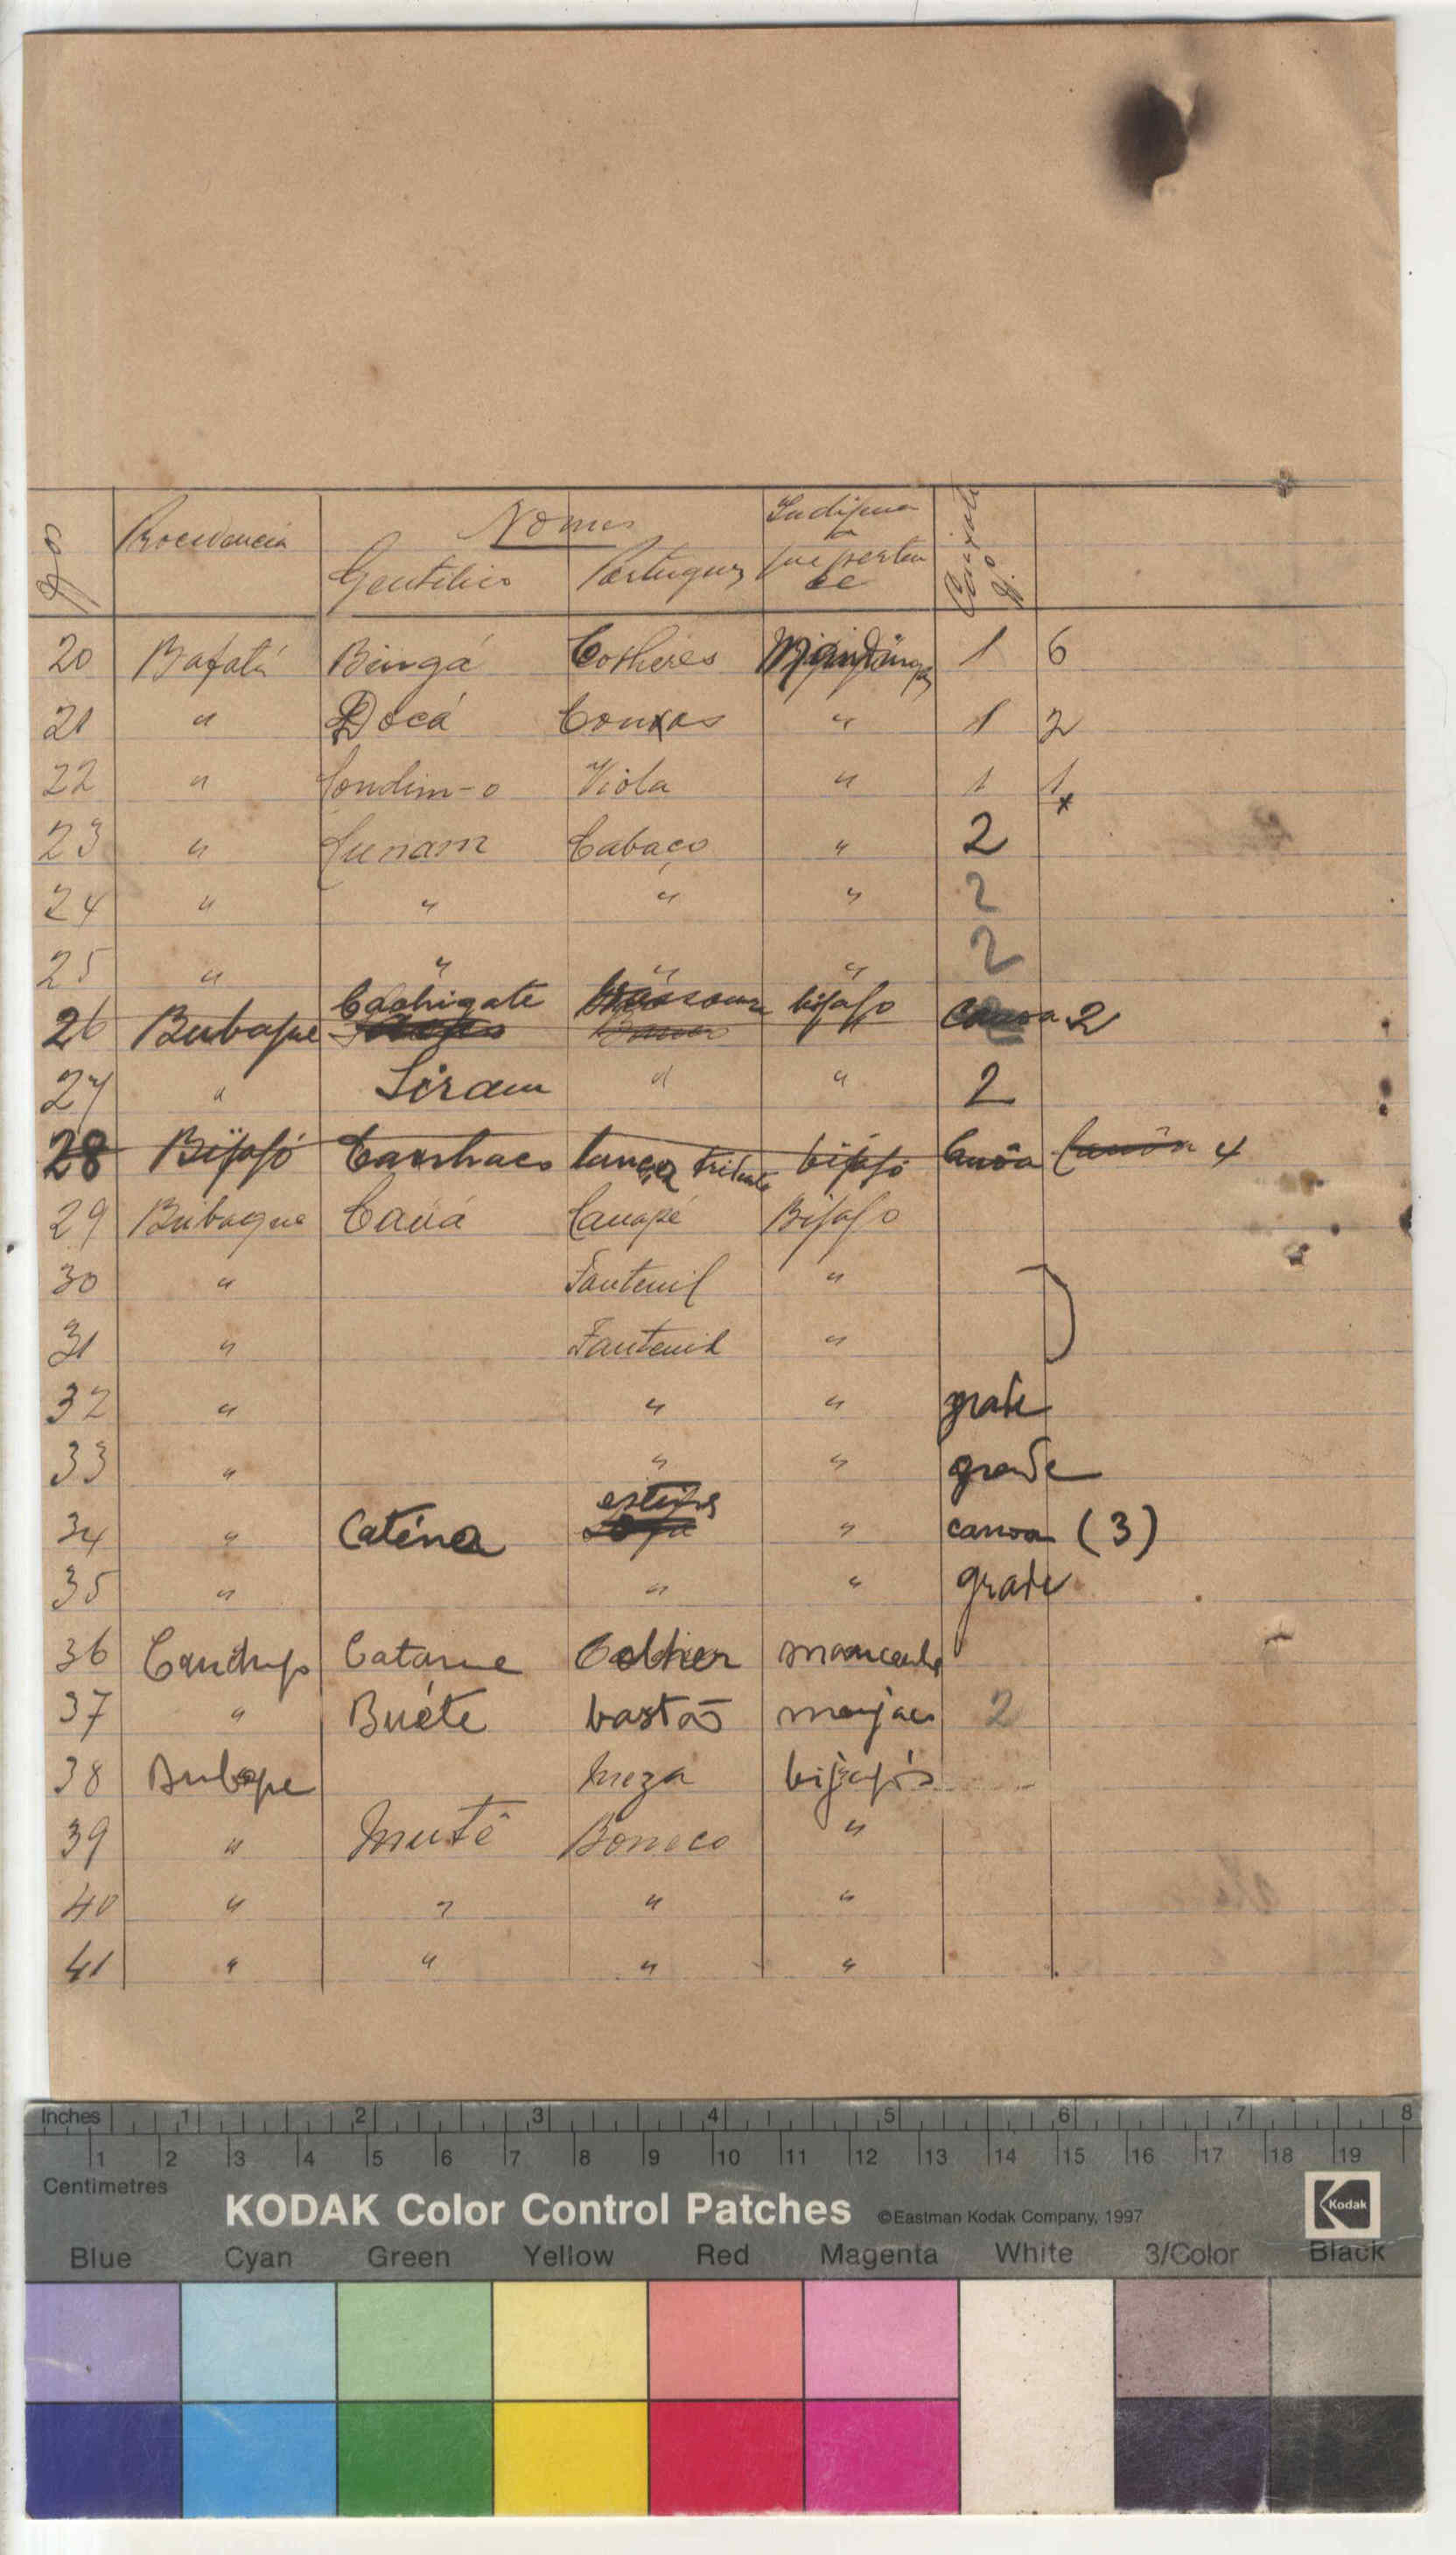 Nos Procedencia Nomes Indijena
Gentilico Portuguez que perten
ce Caixote
20 Bafatá Bingá Colheres Mandinga 1 6
21 " Docá Couxas " 1 2
22 " Condim-o Viola " 1 1
x
23 " Cunam Cabaço " 2
24 " " " " 2
25 " " " " 2
Cachigate bijajo
26 Bubaque canoa 2
27 " Siram " " 2
28 Bijajó lança bijajó Canôa Canôa 4
29 Bubaque Cauá Canapé Bijajo
30 " Fauteuil "
31 " Fauteuil "
32 " " " grade
33 " " " grade
34 " Caténa Sofá " canoa (3)
35 " " " grade
36 Catame Colher
37 " Buéte bastão manjaco 2
38 Bubaque Meza bijajós
39 " Inutê Boneco "
40 " " " "
41 " " " "
Inches 1 2 3 4 5 6 7 8
1 2 3 4 5 6 7 8 9 10 11 12 13 14 15 16 17 18 19
Centimetres
KODAK Color Control Patches ©Eastman Kodak Company, 1997 Kodak
Blue Cyan Green Yellow Red Magenta White 3/Color Black